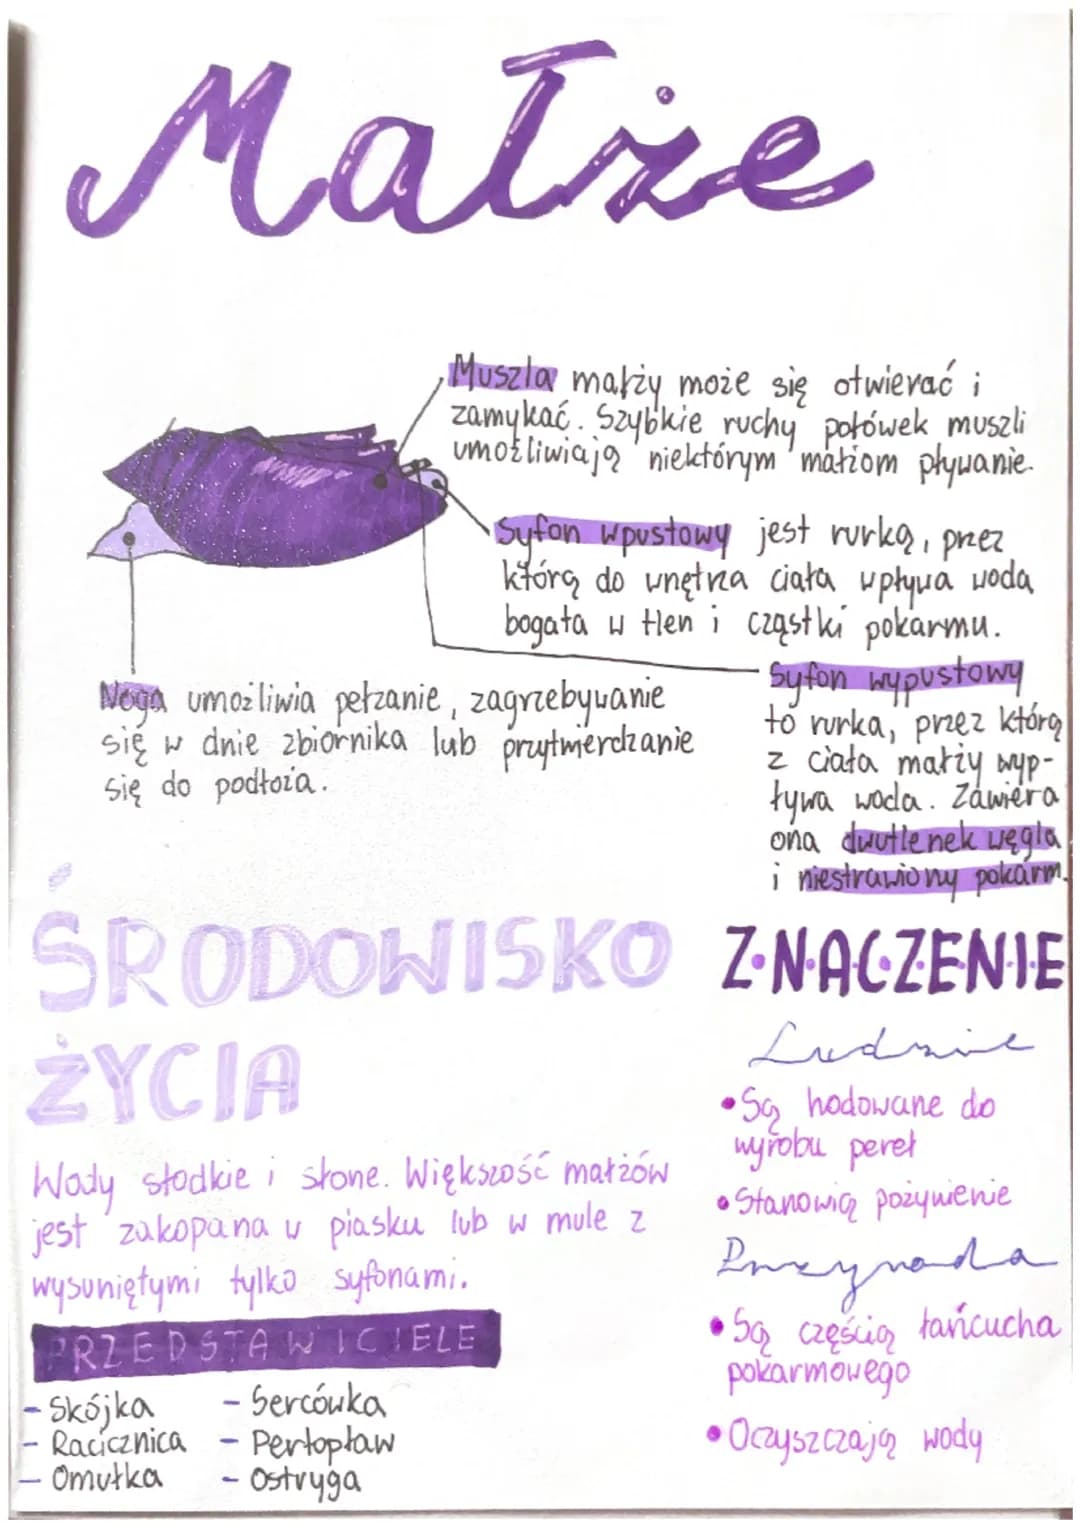 Małże
Muszla małży może się otwierać i
zamykać. Szybkie ruchy połówek muszli
umożliwiają niektórym małżom pływanie.
Syfon wpustowy jest rurką, przez
którą do wnętrza ciała wpływa woda
bogata w tlen i cząstki pokarmu.
Syfon wypustowy
to rurka, przez którą
z ciała małży wyp-
ływa woda. Zawiera
ona dwutlenek węgla
i niestrawiony pokarm.
Noga umożliwia pełzanie, zagrzebywanie
się w dnie zbiornika lub przytwierdzanie
się do podłoża.
ŚRODOWISKO
ŻYCIA
Wody słodkie i słone. Większość małżów
jest zakopana w piasku lub w mule z
wysuniętymi tylko syfonami.
PRZEDSTAWICIELE
- Skójka
- Racicznica
- Omułka
- Sercówka
- Perłopław
- Ostryga
Z•N•A•C•Z•E•N•I•E
Ludzie
• Są hodowane do
wyrobu pereł
• Stanowią pożywienie
Przyroda
• Są częścią łańcucha
pokarmowego
• Oczyszczają wody